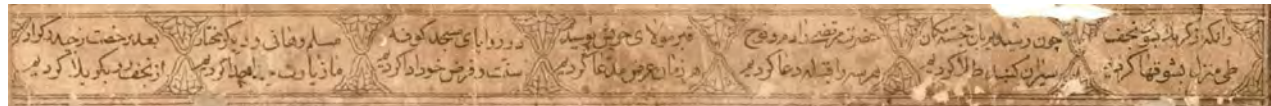 وانکه از کربلا بسوی نجف چون رسیدیم بان خجسته مکان حضرت مرتضی و آدم و نوح قبر مولای خویش بوسید در زوایای مسجد کوفه مسلم و هانی و دیگر مختار بعد رخصت
طی منزل بشوقها کردیم سیران کنبد طلا کردیم هر سه را قبله دعا کردیم هر زمان عرض مدعا کردیم سنت و فرض خود ادا کردیم ما زیارت کردیم از نجف رو بکربلا کردیم